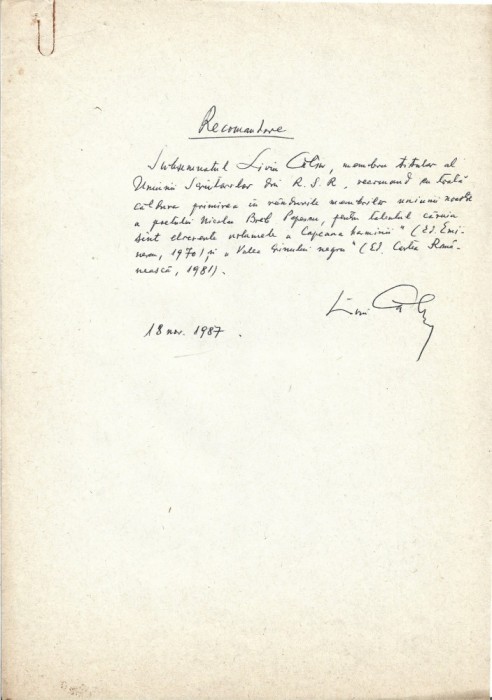 Recomandare
Subsemnatul Liviu Călin, membru titular al
Uniunii Scriitorilor din R.S.R, recomand cu toată
căldura primirea în rândurile membrilor uniunii noastre
a poetului Nicolae Popescu, pentru talentul căruia
sînt elocvente volumele „ Capcana luminii" (Ed. Emi-
nescu, 1970) și „ Valea Grînului negru" (Ed. Cartea Româ-
nească, 1981).
Liviu Călin
18 nov. 1987.